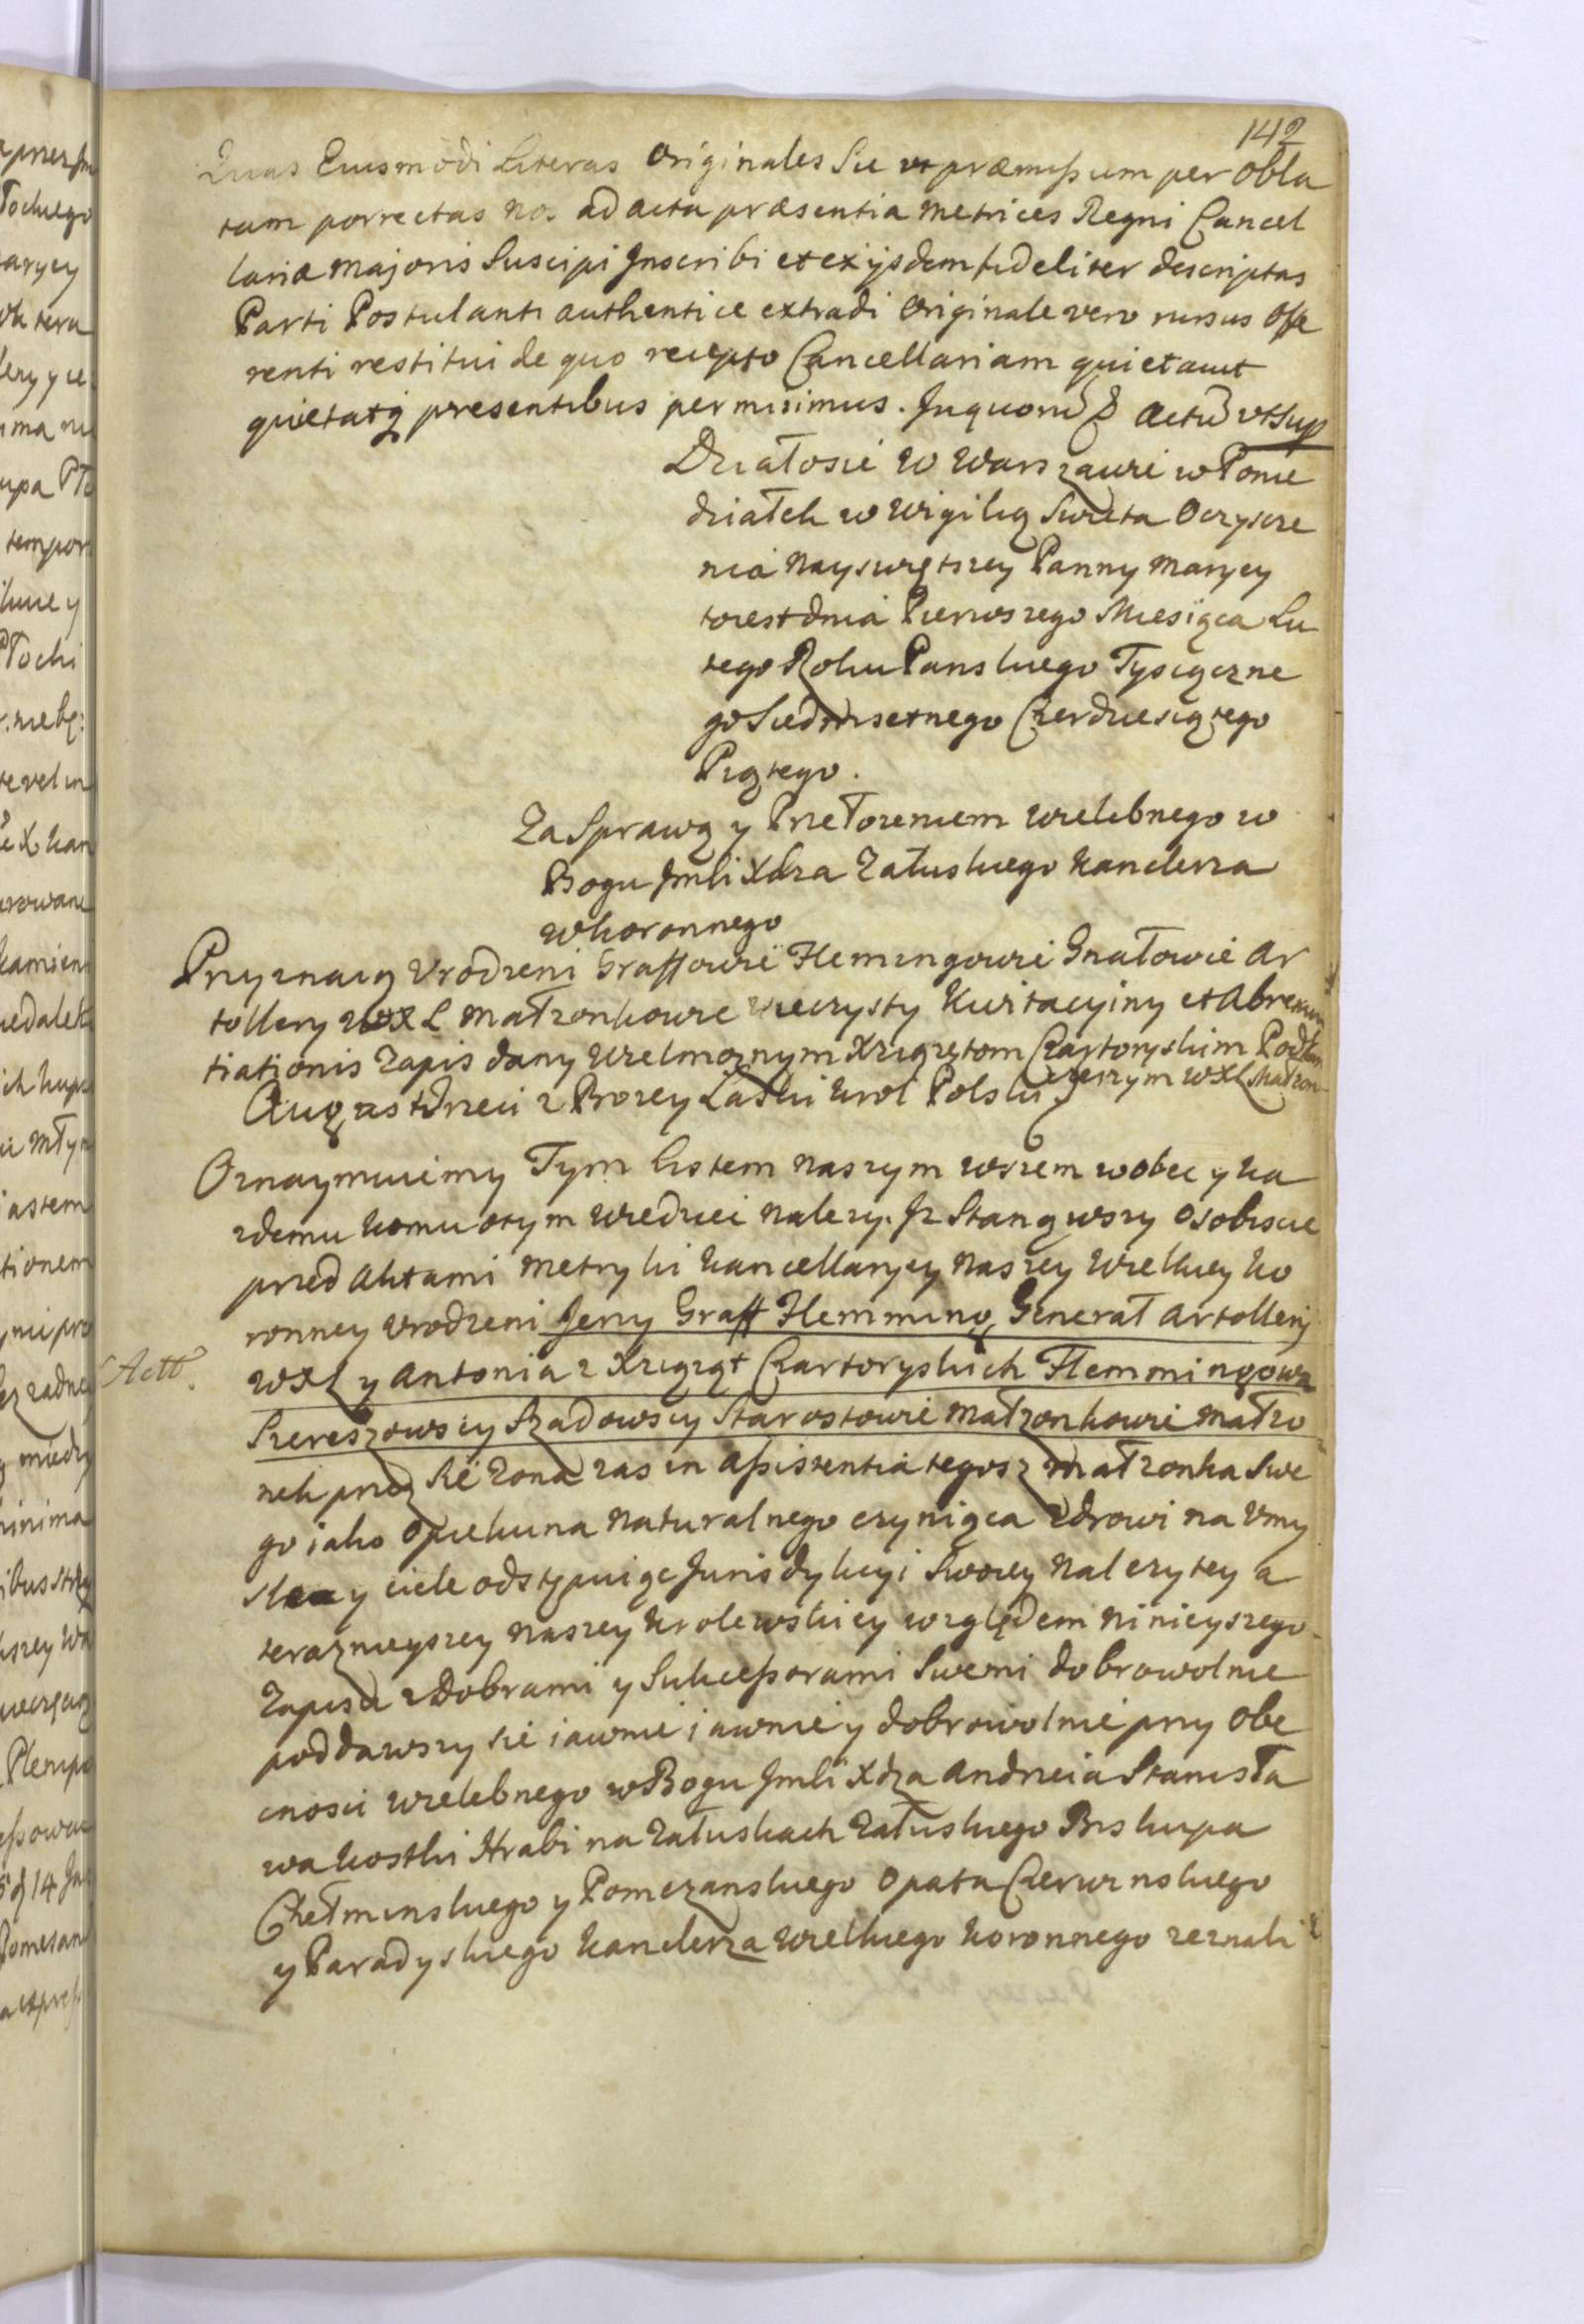 142
Quas Eiusmodi Literas Originales Sic ut præmissum per obla
tam porrectas nos ad acta præsentia Metrices Regni Cancel
lariæ Majoris Suscipi Inscribi et ex ijsdem fideliter descriptas
Parti Postulanti authentice extradi Originale vero rursus Offe
renti restitui de quo recepto Cancellariam quietavit
quietatq presentibus permisimus. In quorũ Actũ vt Sup
Działosie w Warszawie w Ponie
działek w Wigilią Swięta Oczyscze
nia Nayswiętszey Panny Maryey
toiest dnia Pierwszego Miesiąca Lu
tego Roku Panskiego Tysiączne
go Siedmsetnego Czerdziesiątego
Piątego.
Za Sprawą y Przełozeniem Wielebnego w
Bogu Jmści Xdza Załuskiego Kanclerza
WKoronnego
Przyznaią Urodzeni Graffowie Flemingowie Gnałowie Ar
tollery WXL Małzonkowie wieczysty Kwitacyiny et Abrenun
tiationis Zapis dany Wielmoznym Xziązętom Czartoryskim Podkan
czerzym WXL Małzon
Augustdrzeii z Bozey Łaski Krol Polski
Oznaymuiemy Tym Listem Naszym wszem wobec y ka
zdemu komu otym Wiedziec Nalezy. Jz Stanąwszy Osobiscie
przed Aktami Metryki Kancellaryey Naszey Wielkiey Ko
ronney Urodzeni Jerzy Graff Flemming Generał Artollerij
WXL y Antonia z Xziąząt Czartoryskich Flemmingowa
Actt.
Szereszowscy Szadowscy Starostowie Małzonkowie Małzo
nek przez Się Zona zas in Assistentia tegosz Małzonka Swe
go iako Opiekuna Naturalnego czyniąca Zdrowi na Umy
sle y ciele odstępuiąc Jurisdykcyi Swoiey Nalezytey a
teraznieyszey Naszey Krolewskiey względem Ninieyszego
Zapisu z Dobrami y Sukcessorami Swemi dobrowolnie
poddawszy się iawnie iawnie y dobrowolnie przy Obe
cnosci Wielebnego w Bogu Jmści Xdza Andrzeia Stanisła
wa Kostki Hrabi na Załuskach Załuskiego Biskupa
Chełminskiego y Pomezanskiego Opata Czerwinskiego
y Paradyskiego Kanclerza Wielkiego Koronnego zeznali